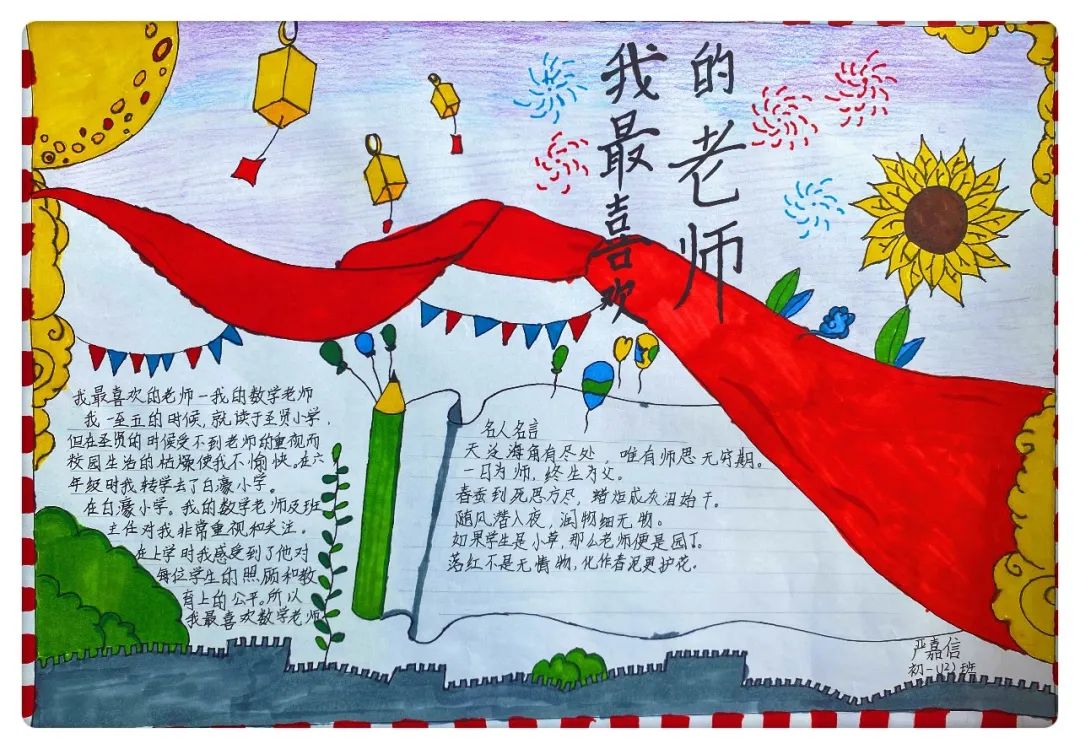 我最喜欢
的老师
我最喜欢的老师—我的数学老师
我一至五的时候,就读于圣贤小学,
但在圣贤的时候受不到老师的重视而
校园生活的枯燥使我不愉快。在六
年级时我转学去了白濠小学。
在白濠小学。我的数学老师及班
主任对我非常重视和关注。
在上学时我感受到了他对
每位学生的照顾和教
育上的公平。所以
我最喜欢数学老师
名人名言
天泛海角有尽处,唯有师思无穷期。
一日为师,终生为父。
春蚕到死思方尽,蜡炬成灰泪始干。
随风潜入夜,润物细无物。
如果学生是小草,那么老师便是园丁。
落红不是无情物,化作春泥更护花.
严嘉信
初一(12)班